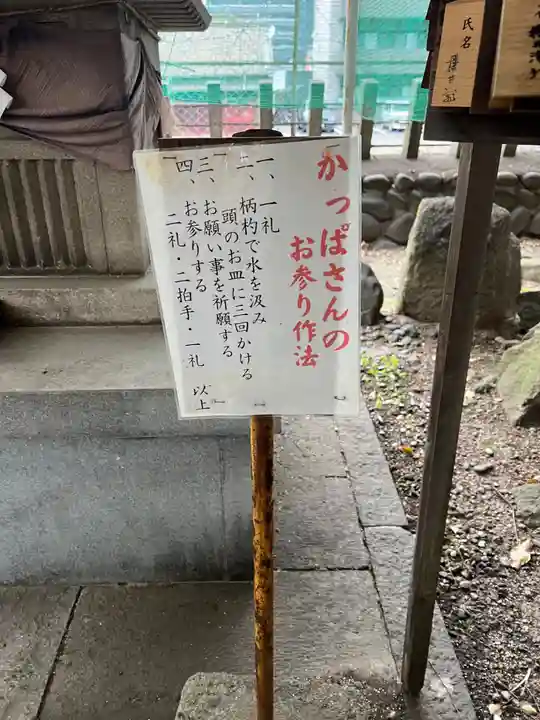 かっぱさんの
お参り作法
一、一礼
二、柄杓で水を汲み
頭のお皿に三回かける
三、お願い事を祈願する
四、お参りする
二礼・二拍手・一礼
以上
氏名